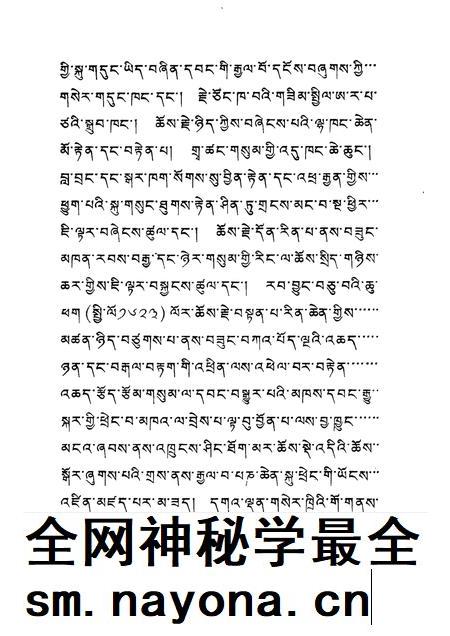 གྱི་སྐུ་གདུང་ཡིད་བཞིན་དབང་གི་རྒྱལ་པོ་དངོས་བཞུགས་ཀྱི…
གསེར་གདུང་ཁང་དང་།  རྗེ་ཙོང་ཁ་པའི་གཟིམ་སྤྱིལ་ཨ་ར་པ་
ཙའི་སྒྲུབ་ཁང་།  ཆོས་རྗེ་ཉིད་ཀྱིས་བཞེངས་པའི་ལྷ་ཁང་ཆེན་
མོ་རྟེན་དང་བརྟེན་པ།  གྲྭ་ཚང་གསུམ་གྱི་འདུ་ཁང་ཆེ་ཆུང་།
བླ་བྲང་དང་སྒར་ཁག་སོགས་སུ་བྱིན་རྟེན་དང་འཕྲ་རྒྱན་གྱིས…
ཕྱུག་པའི་སྐུ་གསུང་ཐུགས་རྟེན་ཤིན་ཏུ་གྲངས་མང་བ་སྔ་ཕྱིར…
ཇི་ལྟར་བཞེངས་ཚུལ་དང་།  ཆོས་རྗེ་དོན་རིན་པ་ནས་བཟུང་
མཁན་རབས་བརྒྱ་དང་ཉེར་གསུམ་གྱི་རིང་ལ་ཆོས་སྲིད་གཉིས་
ཆར་གྱིས་ཇི་ལྟར་བསྐྱངས་ཚུལ་དང་།  རབ་བྱུང་བཅུ་བའི་ཆུ་
ཕག (སྤྱི་ལོ༡༦༢༣) ལོར་ཆོས་རྗེ་བསྟན་པ་རིན་ཆེན་གྱིས……
མཚན་ཉིད་བཙུགས་པ་ནས་བཟུང་བཀའ་པོད་ལྔའི་འཆད……
ཉན་དང་བརྒལ་བརྟག་གི་འཕྲིན་ལས་འཕེལ་བར་བརྟེན……
འཆད་རྩོད་རྩོམ་གསུམ་ལ་དབང་བསྒྱུར་པའི་མཁས་དབང་རྒྱུ…
སྐར་གྱི་ཕྲེང་བ་མཁའ་ལ་བྲེས་པ་ལྟ་བུ་བྱོན་པ་ལས་བྱ་ཁྱུང……
མངའ་ཞབས་ནས་འཁྲུངས་ཤིང་ཐོག་མར་ཆོས་སྡེ་འདིའི་ཆོས…
སྒོར་ཞུགས་པའི་གྲས་ནས་རྒྱལ་བ་པཎ་ཆེན་སྐུ་ཕྲེང་གི་ཡོངས…
འཛིན་མཛད་པར་མ་ཟད།  དགའ་ལྡན་གསེར་ཁྲིའི་གོ་གནས་
全网神秘学最全
sm.nayona.cn